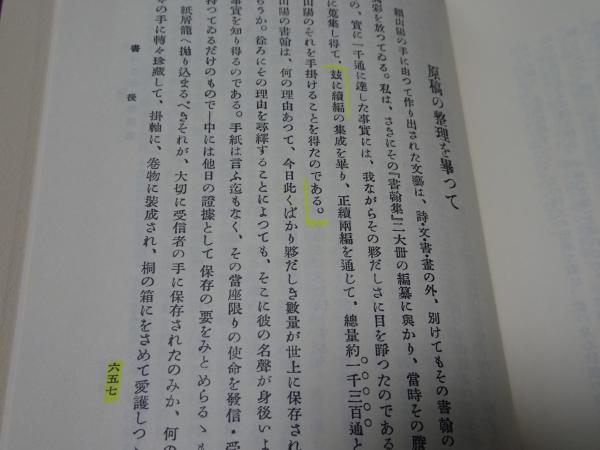 原稿の整理を畢つて
頼山陽の手に由つて作り出された文藝は、詩・文・書・畫の外、別けてもその書翰の
彩を放つてゐる。私は、さきにその『書翰集』二大册の編纂に與かり、當時その謄
の、實に一千通に達した事實には、我ながらその夥だしさに目を睜つたのである
に蒐集し得て、玆に續編の集成を畢り、正續兩編を通じて、總量約一千三百通と
山陽のそれを手掛けることを得たのである。
山陽の書翰は、何の理由あつて、今日此くばかり夥だしき數量が世上に保存され
らうか。徐ろにその理由を尋繹することによつても、そこに彼の名聲が身後いよ
事實を知り得るのである。手紙は言ふ迄もなく、その當座限りの使命を發信・受
持つてゐるだけのもので―中には他日の證據として保存の要をみとめらるゝも
紙屑籠へ抛り込まるべきそれが、大切に受信者の手に保存されたのみか、何の
々の手に轉々珍藏して、掛軸に、卷物に裝成され、桐の箱にをさめて愛護しつ
書後
六五七